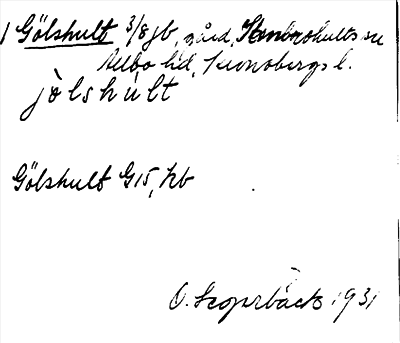 1 Gölshult 3/8 jb, gård, Steninohults sn
Allbo hd, Kronobergs l.
jòlshùlt
Gölshult G15, hb
O. Segerbäck 1931